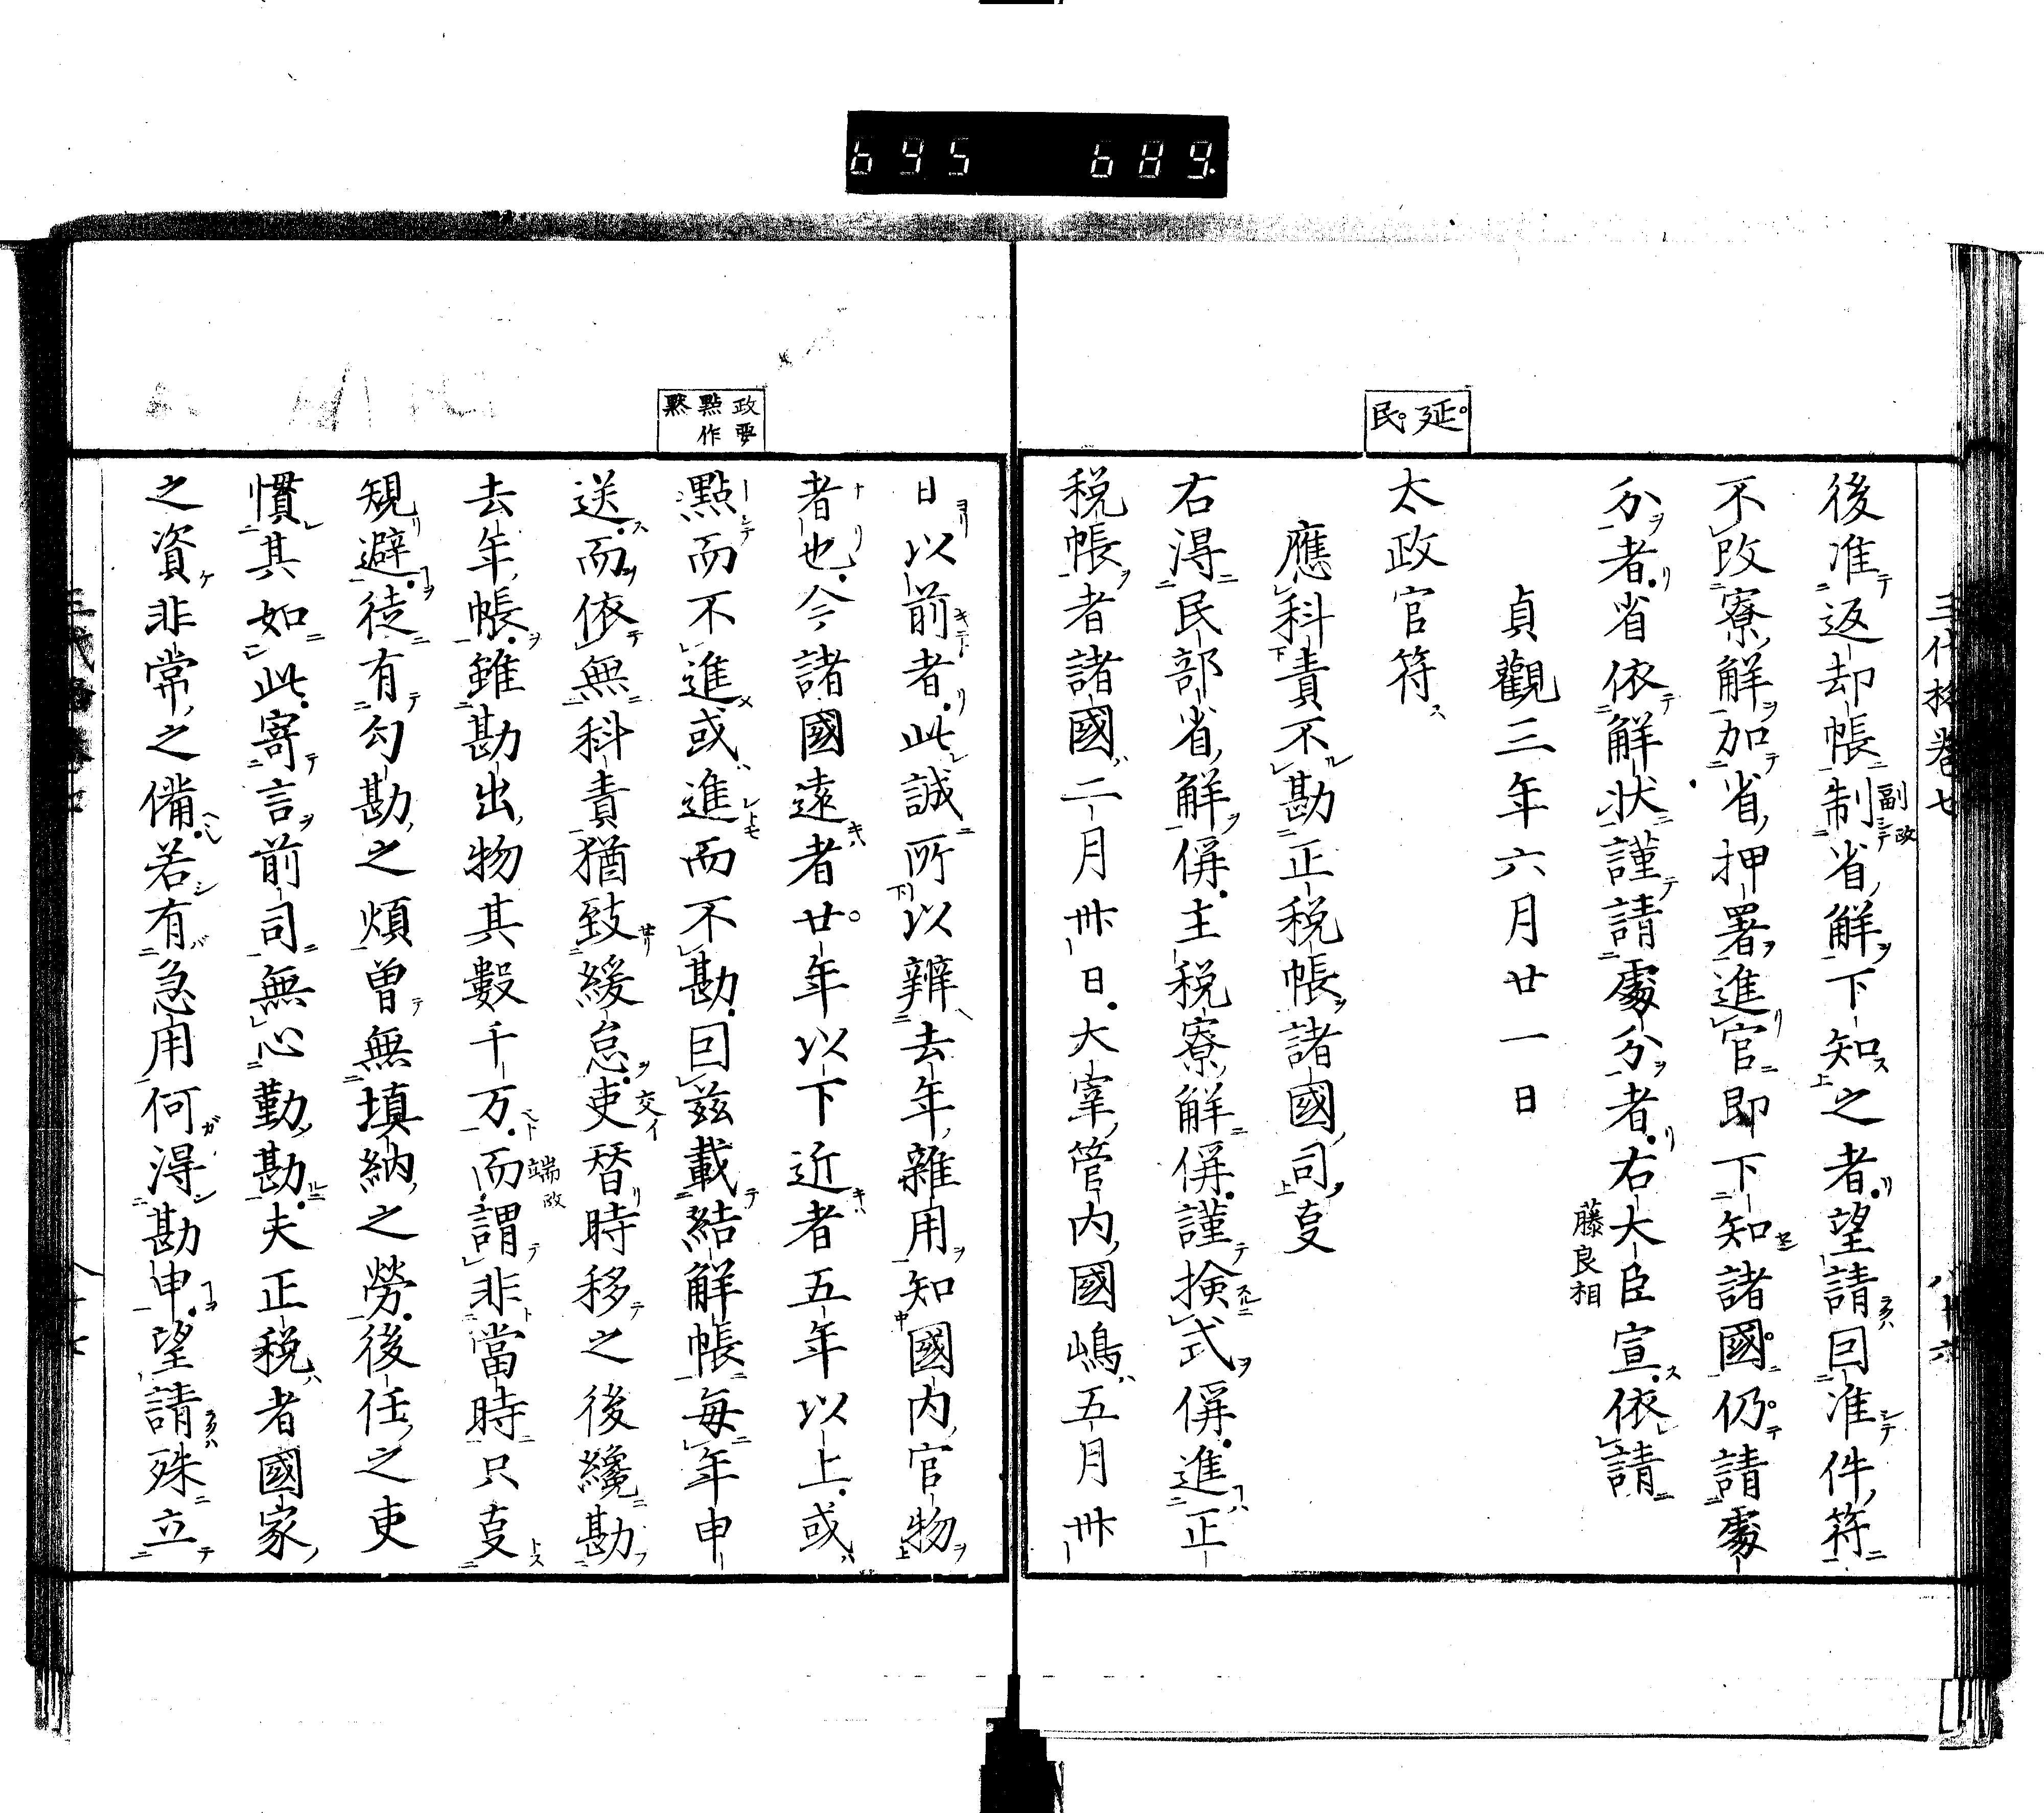 695 689.
延民
三代格卷七
後准返却帳制省解下知之者望請回准件符
副政
不改寮解加省押署進官即下知諸國仍請處
分者省依解状謹請處分者右大臣宣依請
藤良相
貞觀三年六月廿一日
太政官符
應科責不勘正税帳諸國司叓
右得民部省解偁主税寮解偁謹検式偁進正
税帳者諸國二月卅日大宰管内國嶋五月卅
政要
點作
黙
日以前者此誠所以辨去年雜用知國内官物
者也今諸國遠者廿年以下近者五年以上或
點而不進或進而不勘回茲載結解帳每年申
送而依無科責猶致緩怠吏替時移之後纔勘
交イ
去年帳雖勘出物其數千万而謂非當時只叓
端改
規避徒有勾勘之煩曽無填納之勞後任之吏
慣其如此寄言前司無心勤勘夫正税者國家
之資非常之備若有急用何得勘申望請殊立